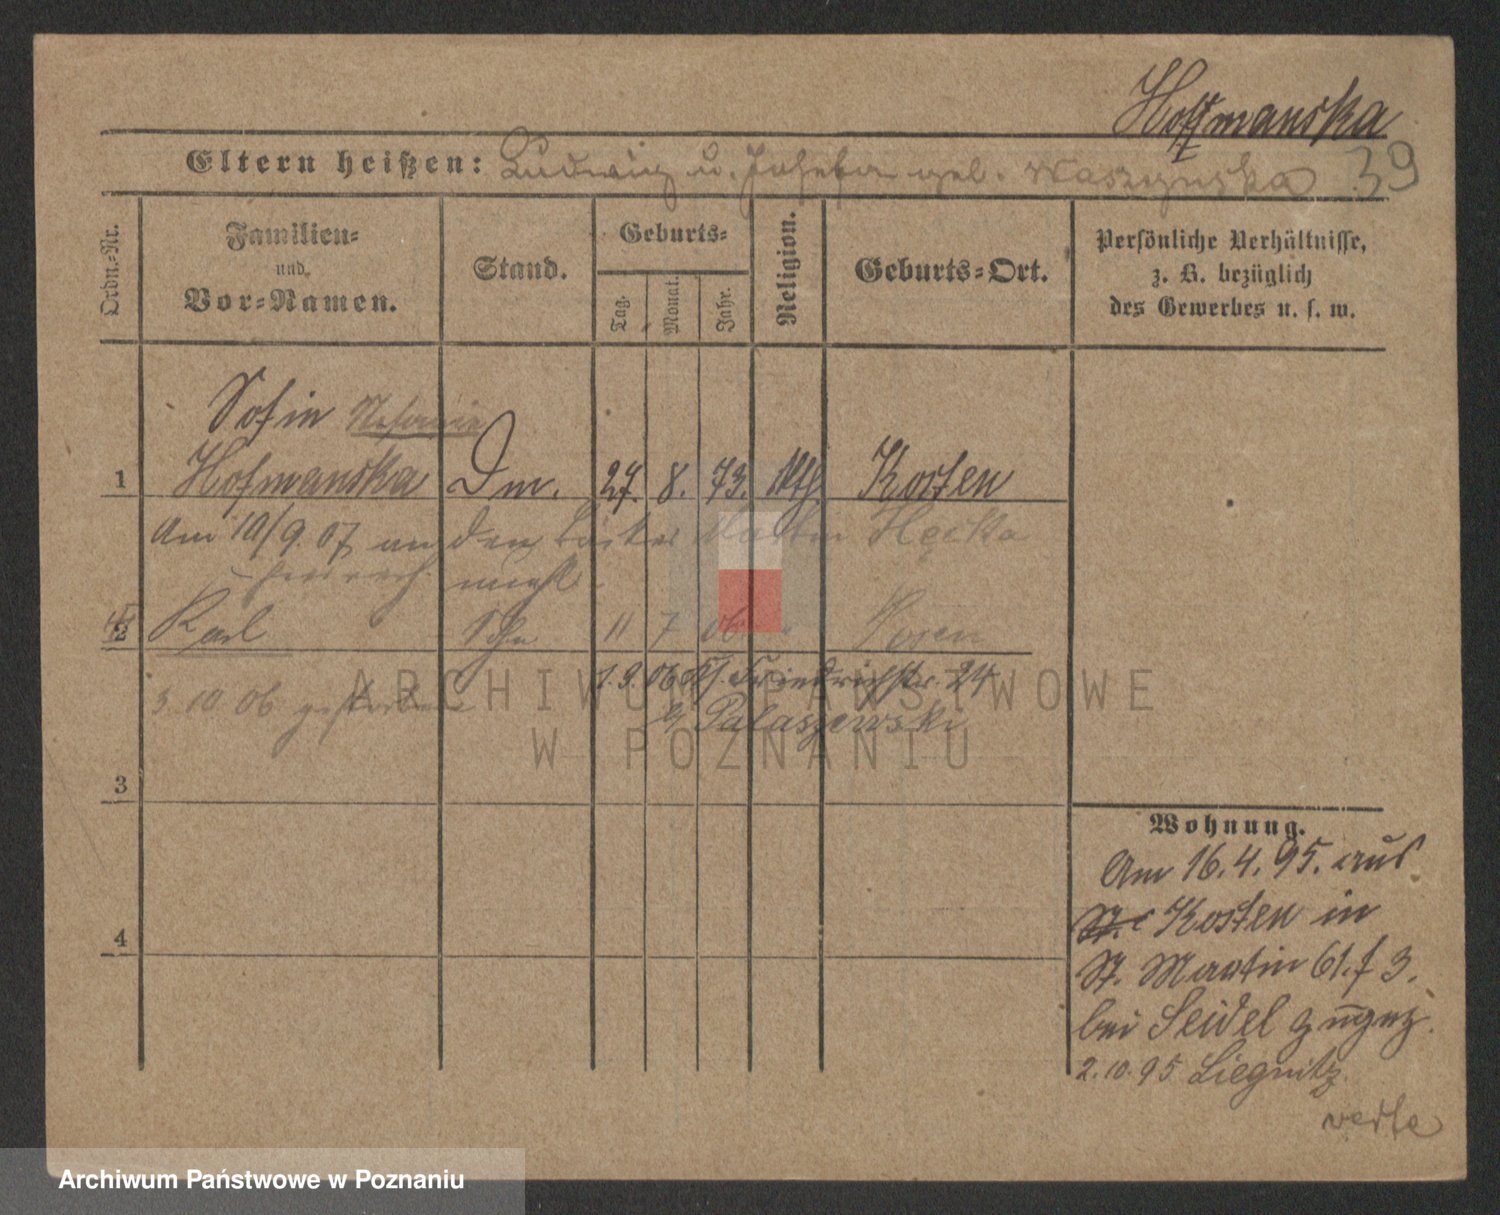 Hoffmanska
39
Eltern heißen: Ludwig u. Josefa geb. Waszynska
Ordn.-Nr.
Familien- und Vor-Namen.
Stand.
Geburts-
Tag.
Monat.
Jahr.
Religion.
Geburts-Ort.
Persönliche Verhältnisse,
z. B. bezüglich
des Gewerbes u. s. w.
Sofie Stefania
1 Hofmanska Dm. 27. 8. 73. kth. Kosten
Am 10/9. 07 an den Bäcker Hecka
2 Karl Sohn 11 7 06 " Posen
1.9.06 Friedrichstr. 24
3. 10 06 gestorben
b/ Palaszewski
3
4
Wohnung.
Am 16.4.95. aus
St. Kosten in
St. Martin 61. f 3.
bei Seidel zugez.
2.10.95 Liegnitz.
verte
ARCHIWUM PAŃSTWOWE
W POZNANIU
Archiwum Państwowe w Poznaniu